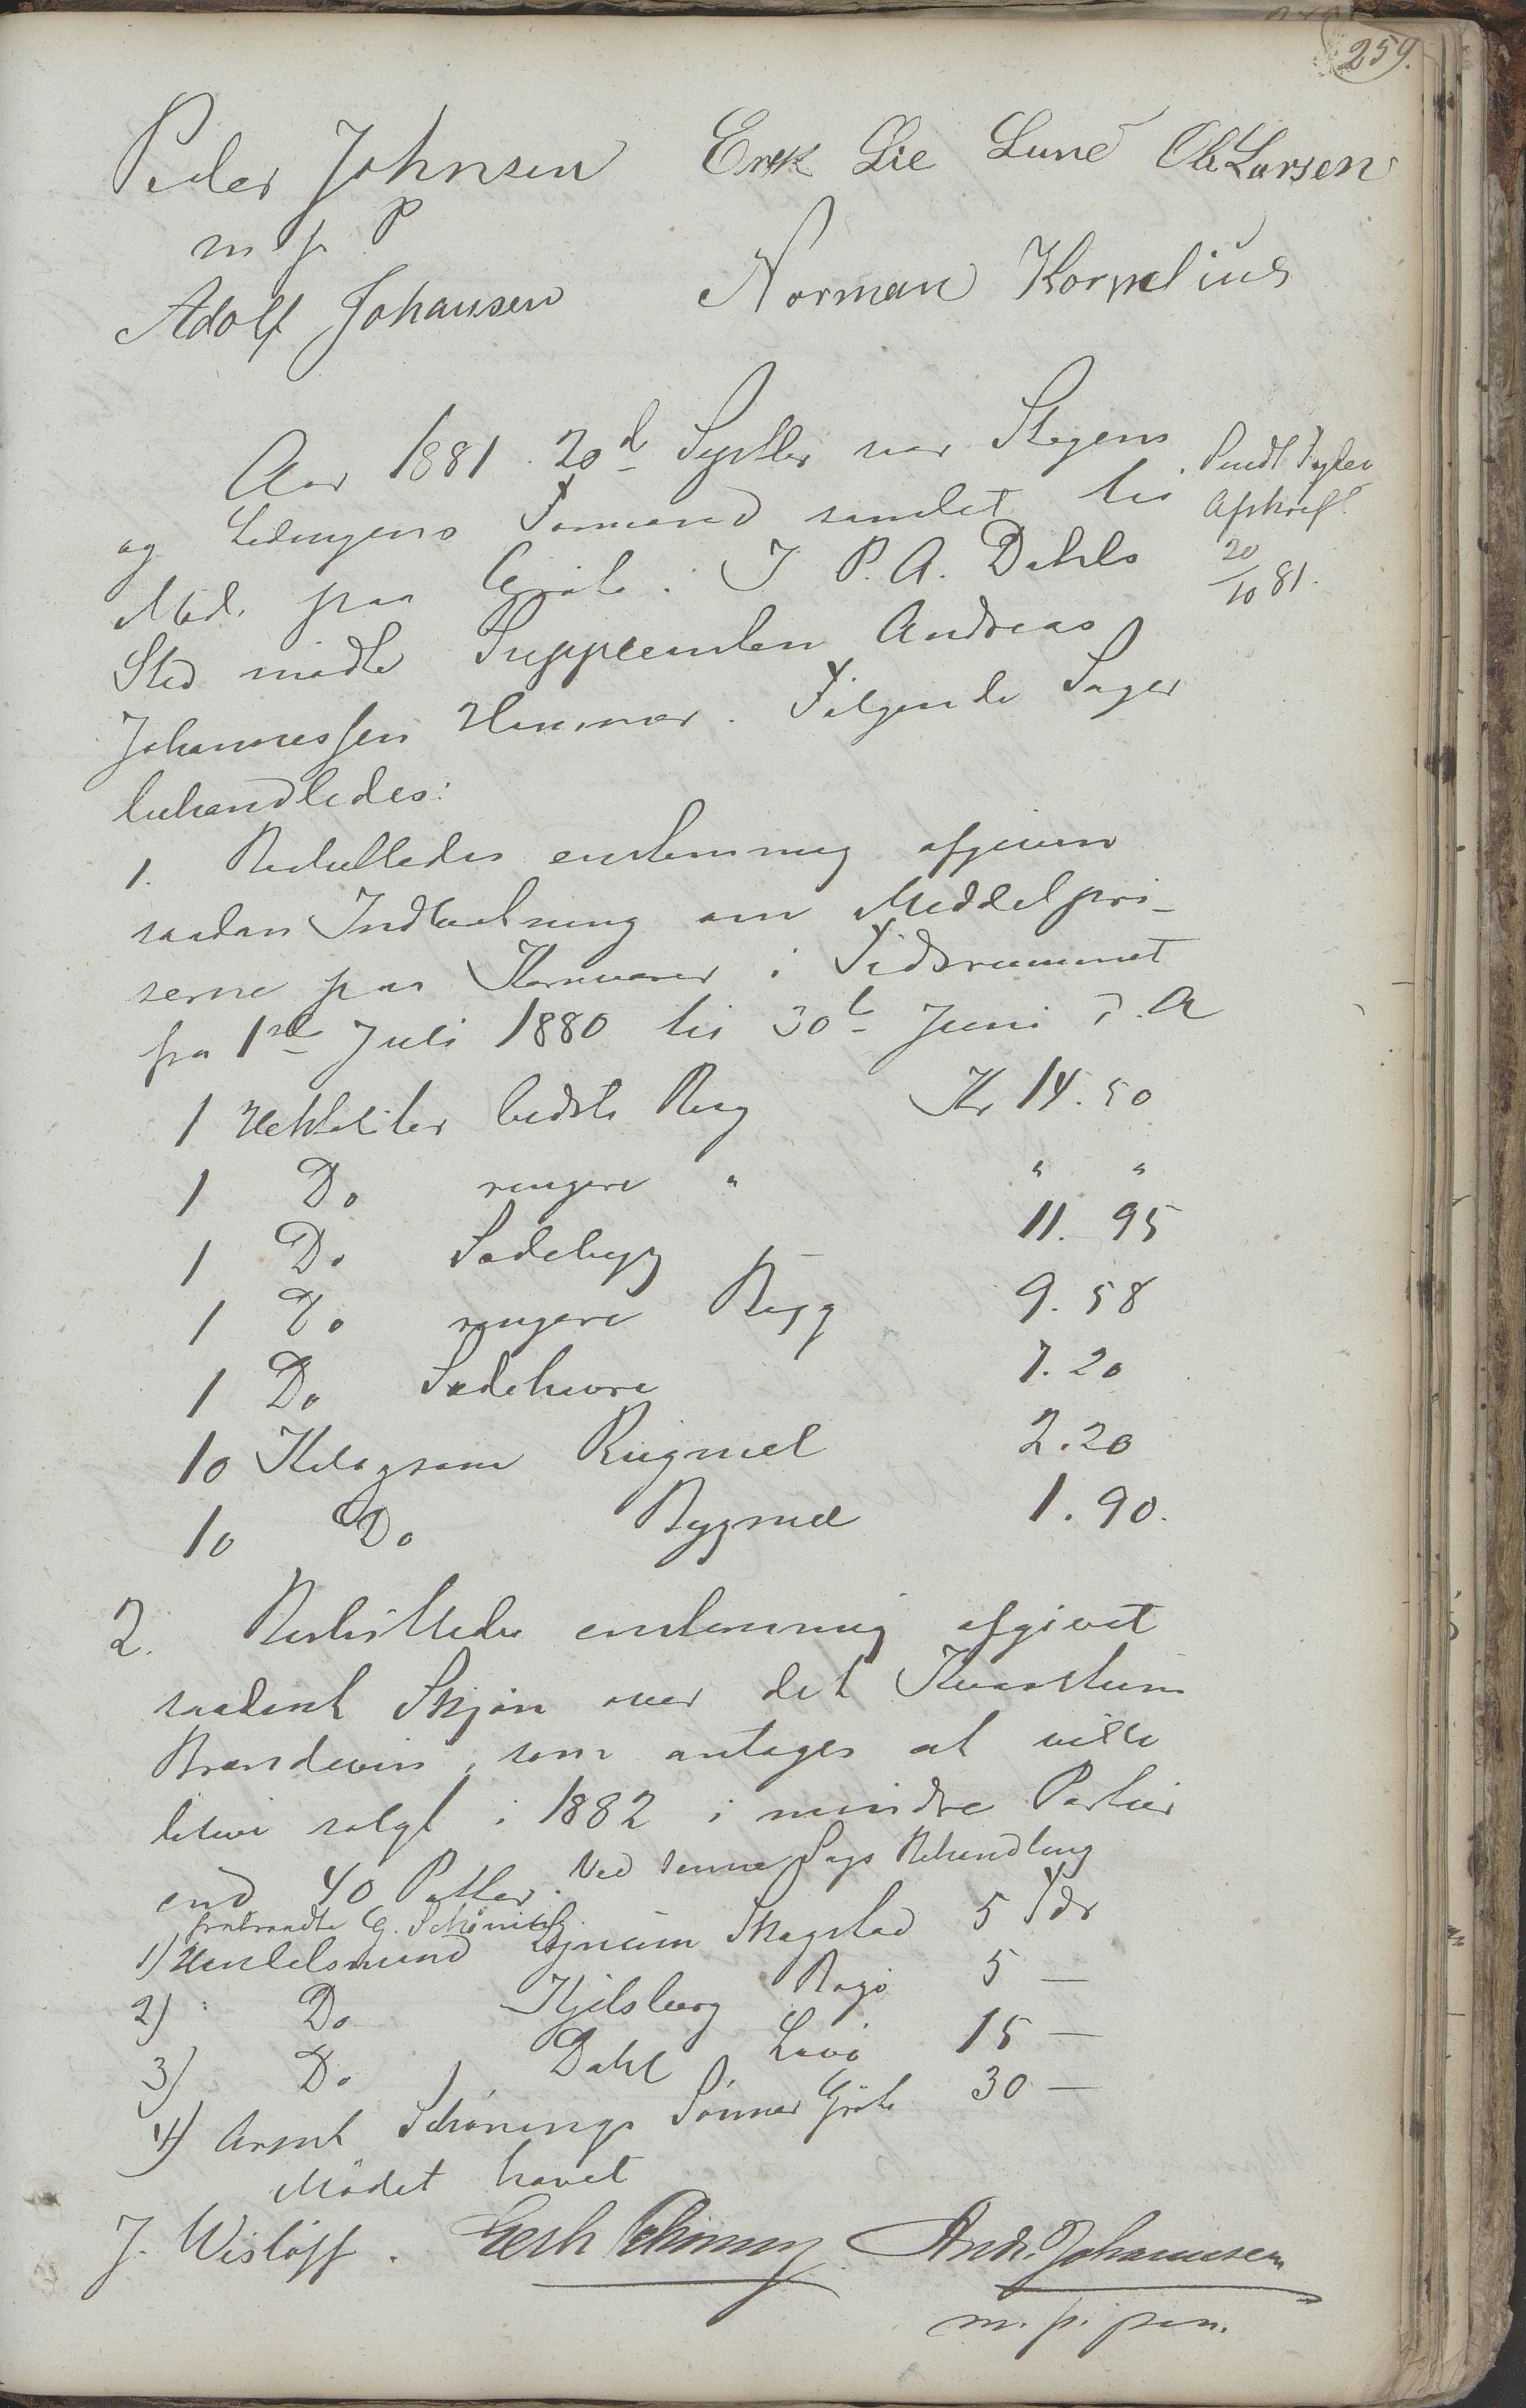 259.
Peder Johnsen Erik Lie Lund Ole Larsen
m f P
Adolf Johansen Norman Kornelius
Aar 1881. 20de Septbr var Stegens
og Ledingens Formænd samlet til
Møde paa Grøtø. I P. A. Dahls
Sted mødte Suppleanten Andreas
Johannessen Hammer. Følgende Sager
behandledes:
Sendt Fogden
Afskrift
20/10 81.
1. Besluttedes enstemmig afgiven
saadan Indberetning om Middelpri-
serne paa Kornvarer i Tidsrummet
fra 1ste Juli 1880 til 30te Juni d. A
1 Hektoliter bedste Rug Kr 14.50
1 Do ringere " " "
1 Do Sædebyg 11. 95
1 Do ringere Byg 9. 58
1 Do Sædehavre 7. 20
10 Kilogram Rugmel 2. 20
10 Do Bygmel 1. 90.
2. Besluttedes enstemmig afgivet
saadant Skjøn over det Kvantum
Brændevin, som antages at ville
blive solgt i 1882 i mindre Partier
end 40 Potter. Ved denne Sags Behandling
fratraadte G. Schøning.
1) Handelsmand Skagstad 5 Fdr
2) Do Kjelsberg Bogø 5 —
3) Do Dahl Løvø 15 —
4) Schønings Sønner Grøtø 30 —
Mødet hævet
J. Wisløff. Gerh Schøning Andr. Johannesen
m. p. pen.